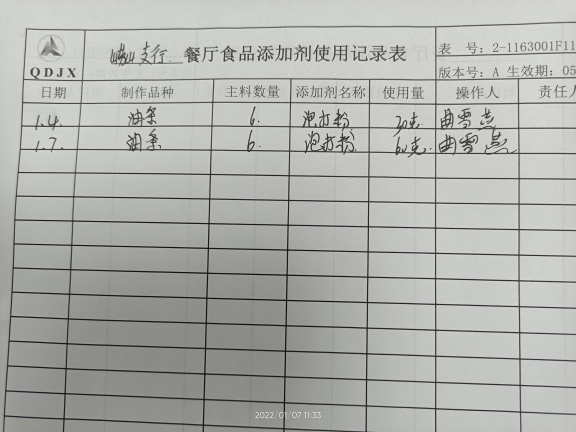 崂山支行 餐厅食品添加剂使用记录表
表 号: 2-1163001F11
QDJX
版本号: A 生效期: 05
日期 制作品种 主料数量 添加剂名称 使用量 操作人 责任人
1.4. 油条 6. 泡打粉 30克 曲雪燕
1.7. 油条 6. 泡打粉 60克 曲雪燕
2022/01/07 11:33